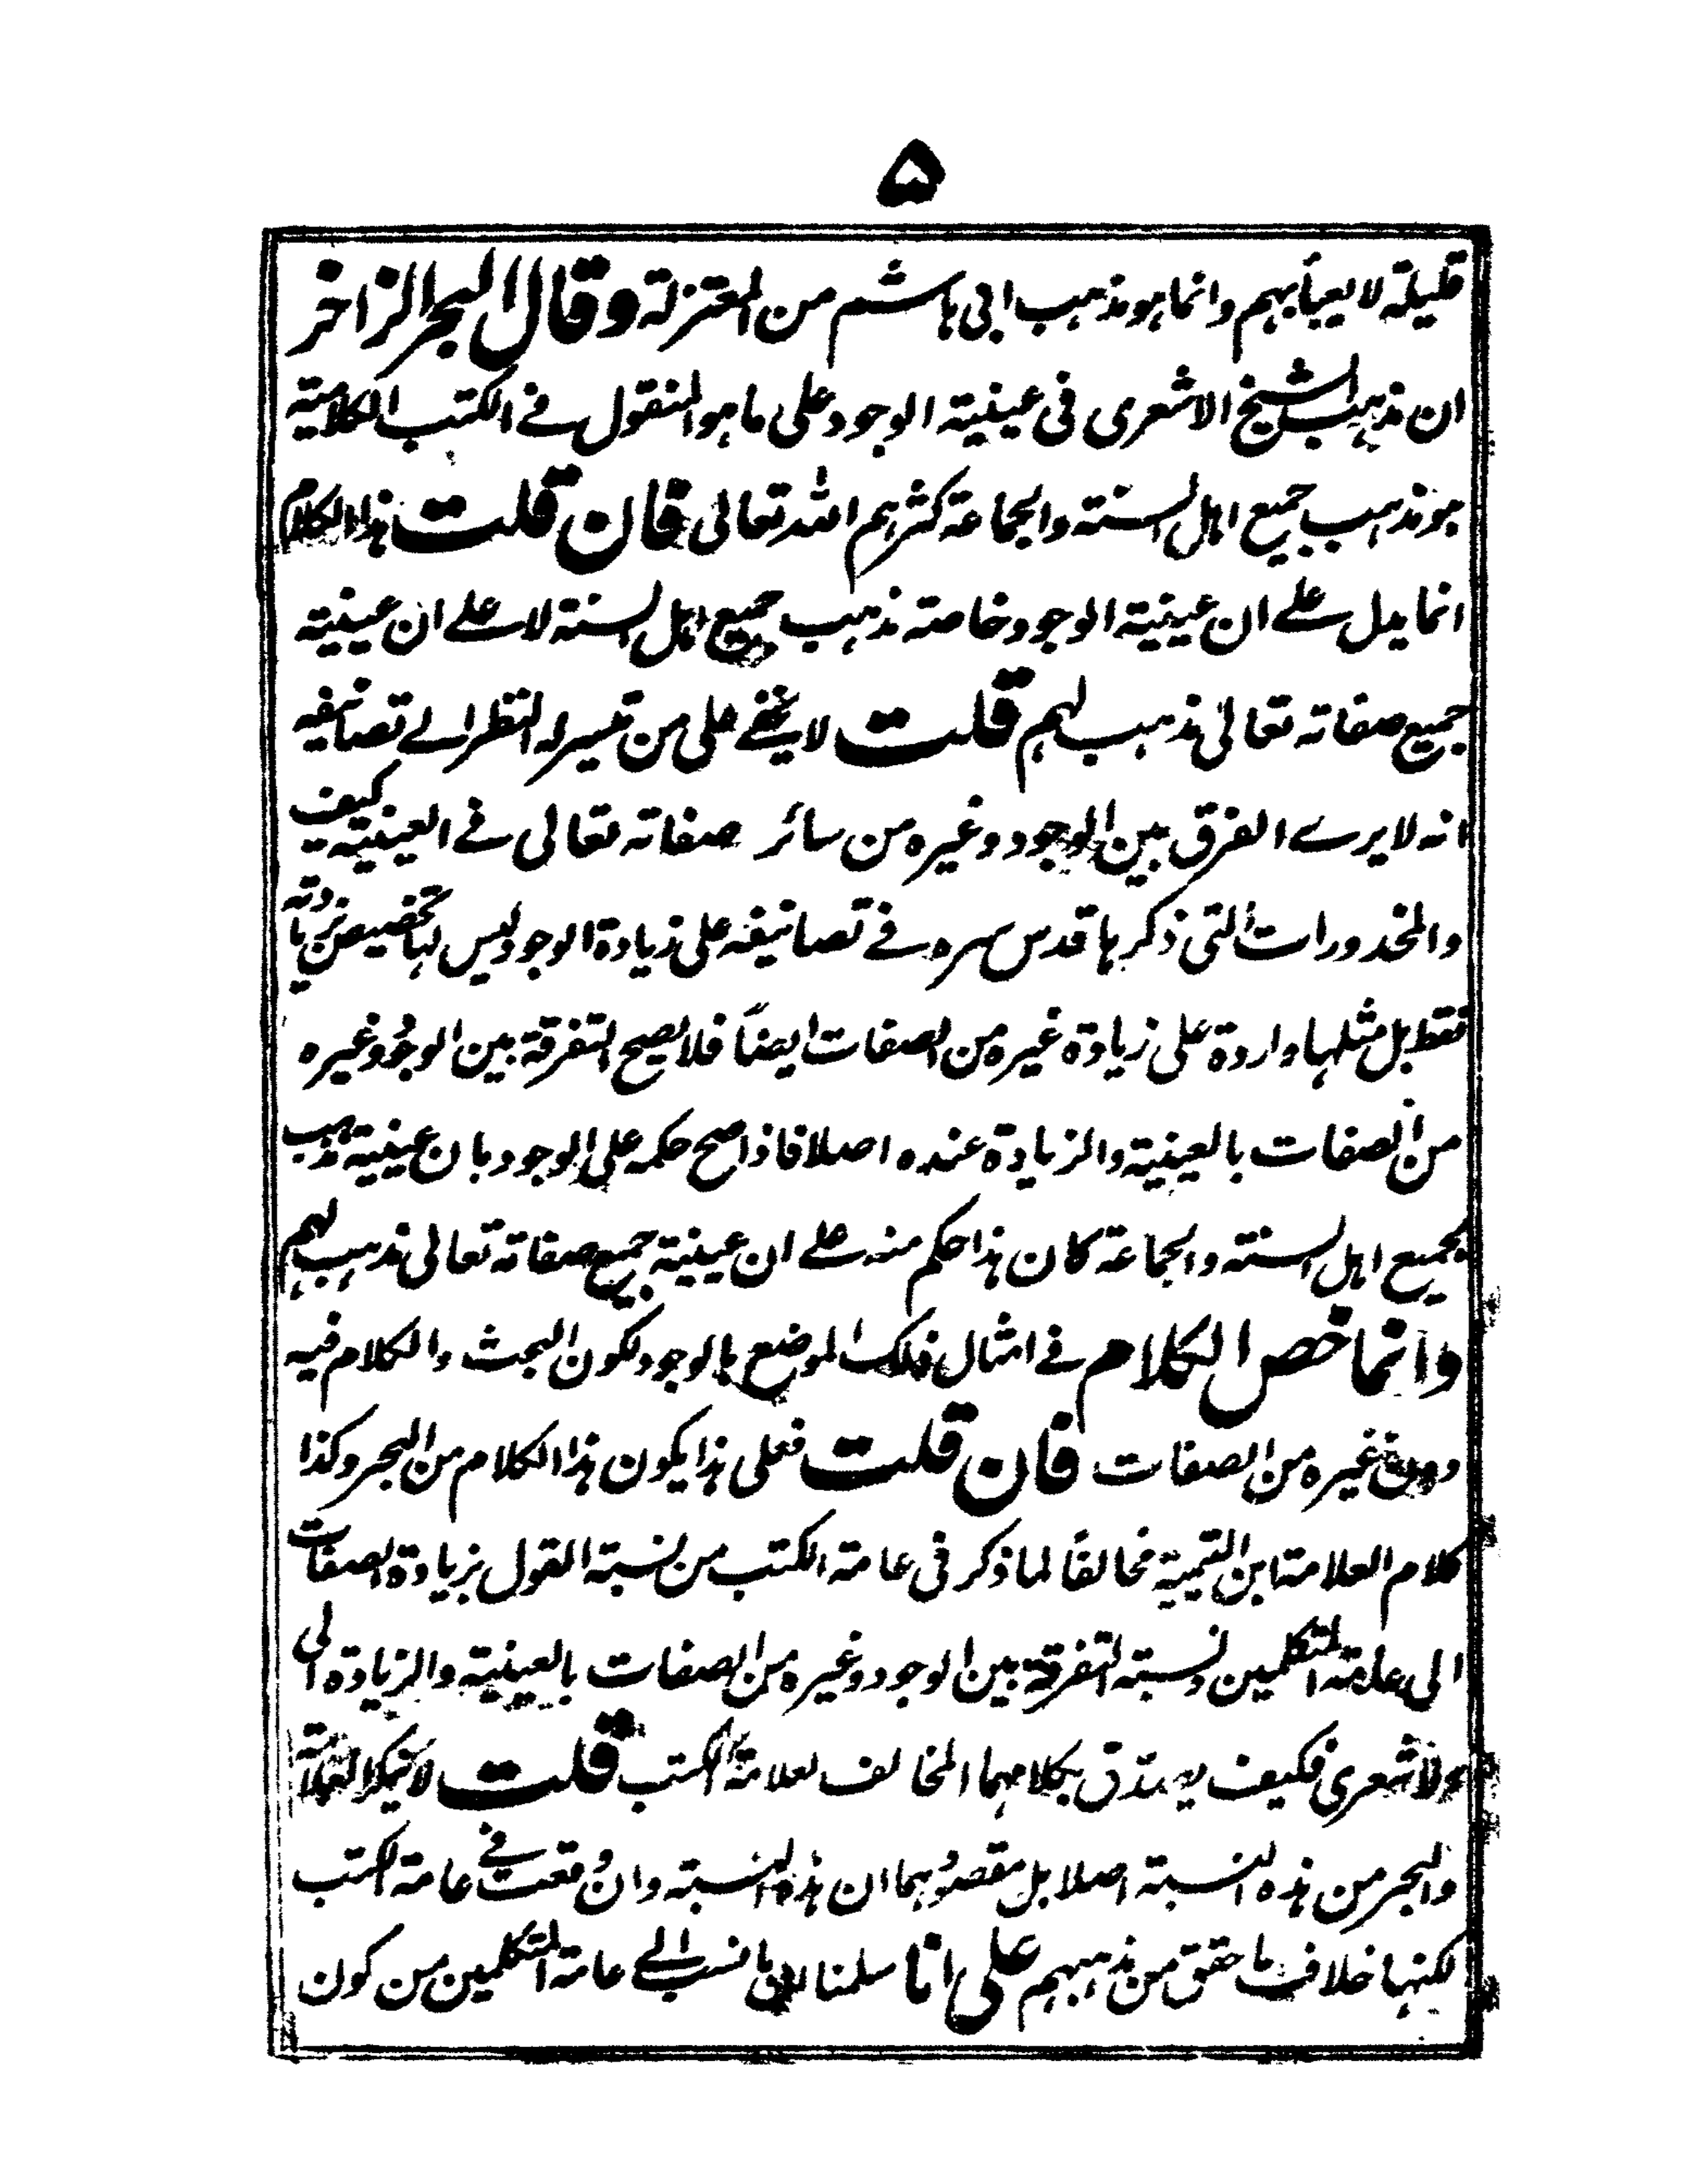 ۵
قليلة لا يعبأ بهم وانما هو مذهب ابى هاشم من المعتزلة وقال البحر الزاخر
ان مذهب الشيخ الاشعرى فى عينية الوجود على ما هو المنقول فے الكتب الكلامية
هو مذهب جميع اهل السنة والجماعة كثرهم الله تعالى فان قلت هذا الكلام
انما يدل علے ان عينية الوجود خاصة مذهب جميع اهل السنة لا علے ان عينية
جميع صفاته تعالى مذهب لهم قلت لا يخفے على من تيسر له النظر الے تصانيفه
انه لا يرے الفرق بين الوجود وغيره من سائر صفاته تعالى فے العينية كيف
والمخدورات التى ذكرها قدس سره فے تصانيفه على زيادة الوجود ليس لها تخصيص بزيادته
فقط بل مثلها واردة على زيادة غيره من الصفات ايضاً فلا يصح التفرقة بين الوجود وغيره
من الصفات بالعينية والزيادة عنده اصلا فاذا صح حكمه على الوجود بان عينية مذهب
لجميع اهل السنة والجماعة كان هذا حكم منه علے ان عينية جميع صفاته تعالى مذهب لهم
وانما خص الكلام فے امثال ذلك الموضع بالوجود لكون البحث والكلام فيه
دون غيره من الصفات فان قلت فعلى هذا يكون هذا الكلام من البحر وكذا
كلام العلامة ابن التيمية مخالفاً لما ذكر فى عامة الكتب من نسبة القول بزيادة الصفات
الى عامة المتكلمين ونسبة التفرقة بين الوجود وغيره من الصفات بالعينية والزيادة الى
الاشعرى فكيف يصدق بكلامهما المخالف لعامة الكتب قلت لا ينكر العلامة
والبحر من هذه النسبة اصلا بل مقصودهما ان هذه النسبة وان وقعت فے عامة الكتب
لكنها خلاف ما حقق من مذهبهم على انا سلمنا ان ما نسب الے عامة المتكلمين من كون